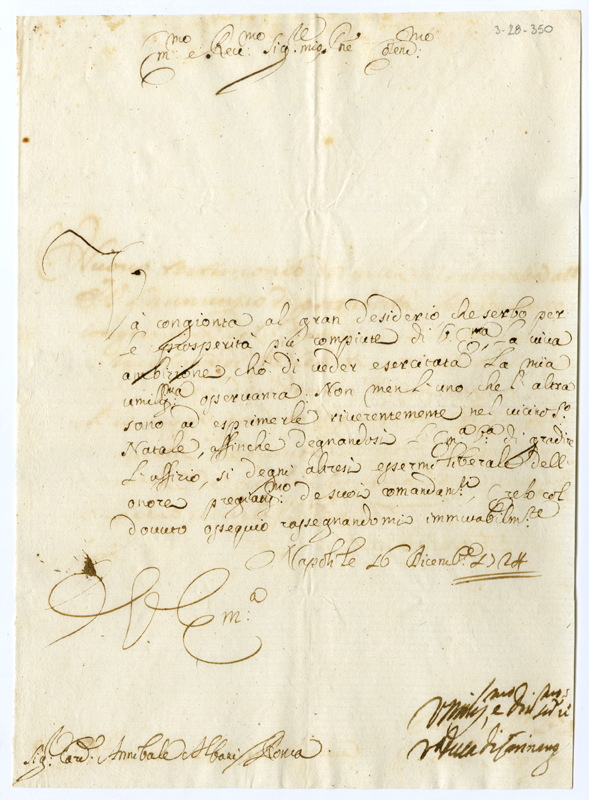 3-28-350
Em.mo e Rev.mo Sig.re mio P.ne Colen.mo
Và congionta al gran desiderio che serbo per
le prosperità più compiute di V. Em.za, la viva
ambizione, chò di veder esercitata la mia
umil.ma osservanza. Non men l'uno, che l'altra
sono ad esprimerle riverentemente nel vicino S.to
Natale, affinche degnandosi l'Em.za V.ra di gradire
l'uffizio, si degni altresì essermi liberale dell'
onore pregiatis.mo de suoi comandam.ti, e resto col
dovuto ossequio rassegnandomi immutabilm.te
Napoli le 16 Dicemb.e 1724
Di V. Em.a
Umilis.mo, e Div.mo
Duca di
Sig.r Card. Annibale Albani Roma